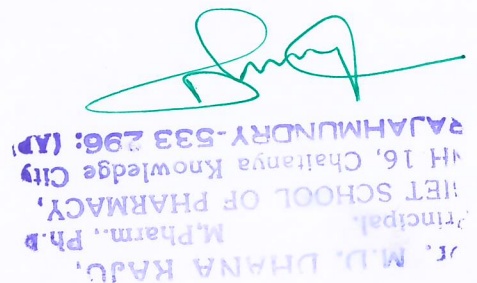 Dr. M.D. DHANA RAJU,
M.Pharm., Ph.D
Principal.
GIET SCHOOL OF PHARMACY,
NH 16, Chaitanya Knowledge City
RAJAHMUNDRY-533 296: (AP)